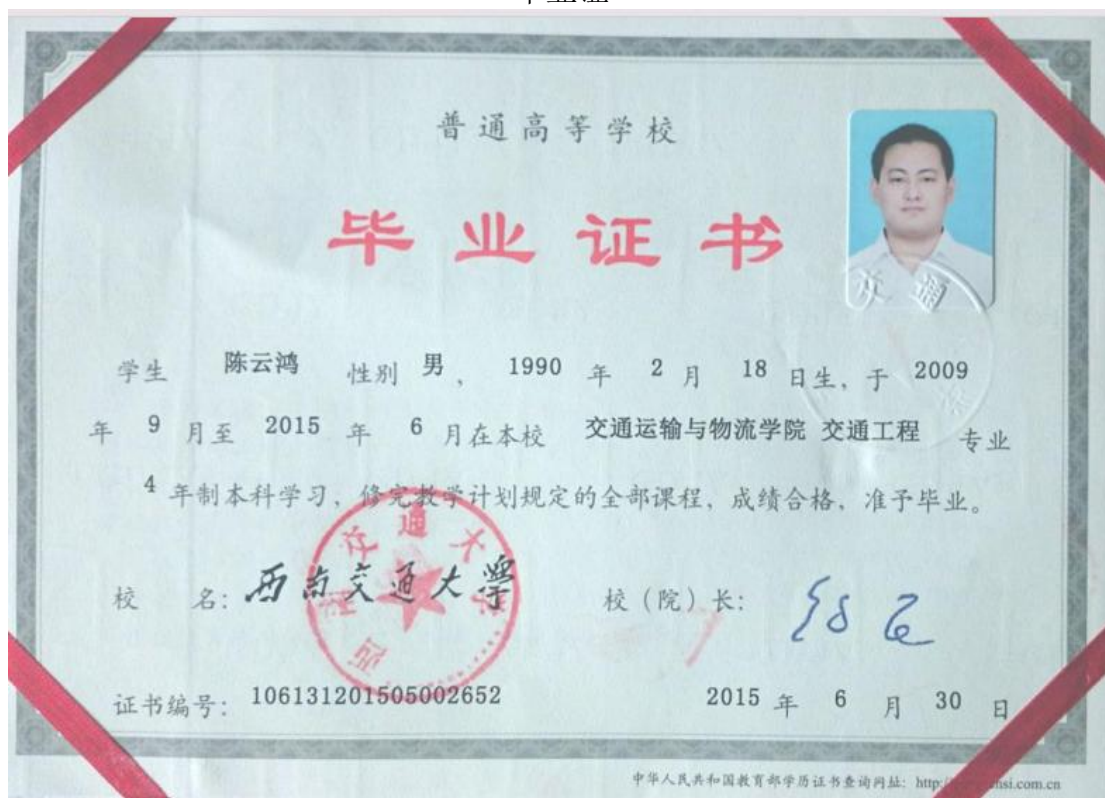 普通高等学校
毕业证书
学生 陈云鸿 性别 男 , 1990 年 2 月 18 日生, 于 2009
年 9 月至 2015 年 6 月在本校 交通运输与物流学院 交通工程 专业
4 年制本科学习, 修完教学计划规定的全部课程, 成绩合格, 准予毕业。
校 名: 西南交通大学
西南交通大学
校 (院) 长:
证书编号: 106131201505002652
2015 年 6 月 30 日
中华人民共和国教育部学历证书查询网址: http:
si.com.cn